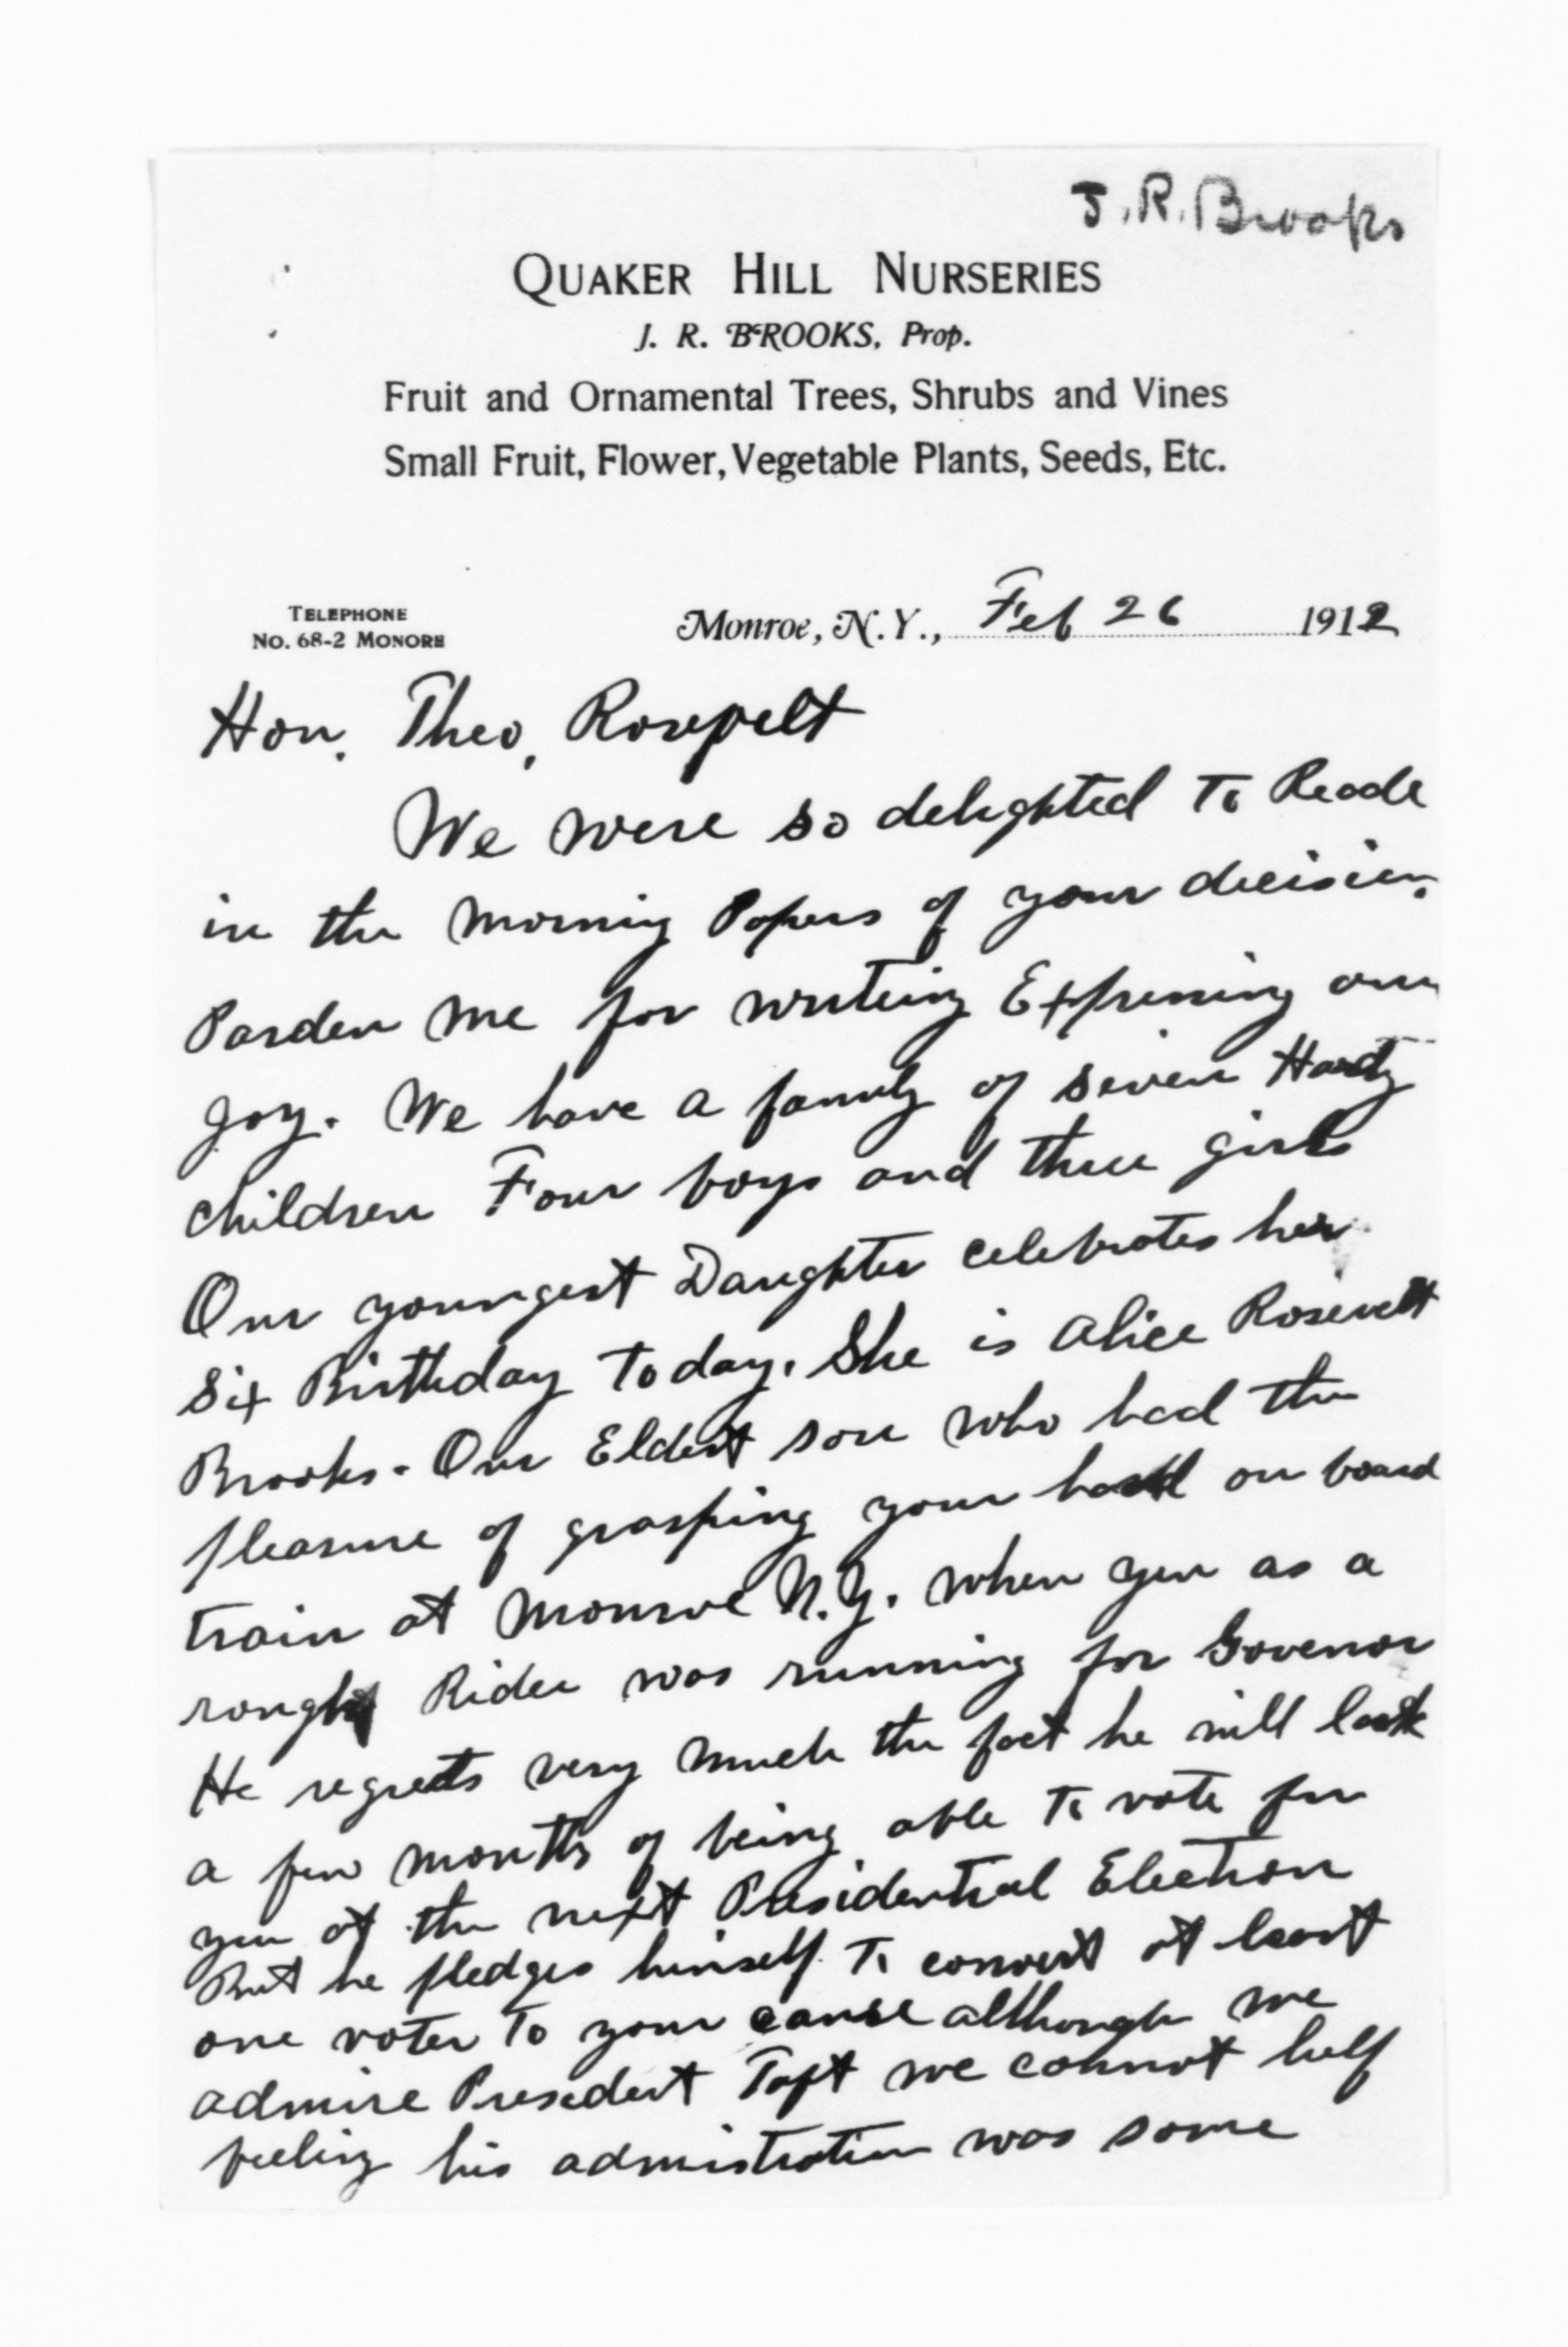 J. R. Brooks
QUAKER HILL NURSERIES
J. R. BROOKS, Prop.
Fruit and Ornamental Trees, Shrubs and Vines
Small Fruit, Flower, Vegetable Plants, Seeds, Etc.
TELEPHONE
No. 68-2 MONORE
Monroe, N.Y., Feb 26 1912
Hon. Theo, Rosevelt
We were so delighted To Reade
in the Morning Papers of your decision.
Parden Me for writeing Expressing our
joy. We have a family of seven Hardy
children Four boys and three girls
Our youngest Daughter celebrates her
Six Birthday Today. She is Alice Rosevelt
Brooks. Our Eldest son who had the
pleasure of grasping your hand on board
train at Monroe N.Y. when you as a
rough Rider was running for Govenor
He regrets very much the fact he will lack
a few months of being able To vote for
you at the next Presidential Election
But he pledges himself To convert at least
one voter To your cause although we
admire Presedent Taft we cannot help
feeling his admistration was some